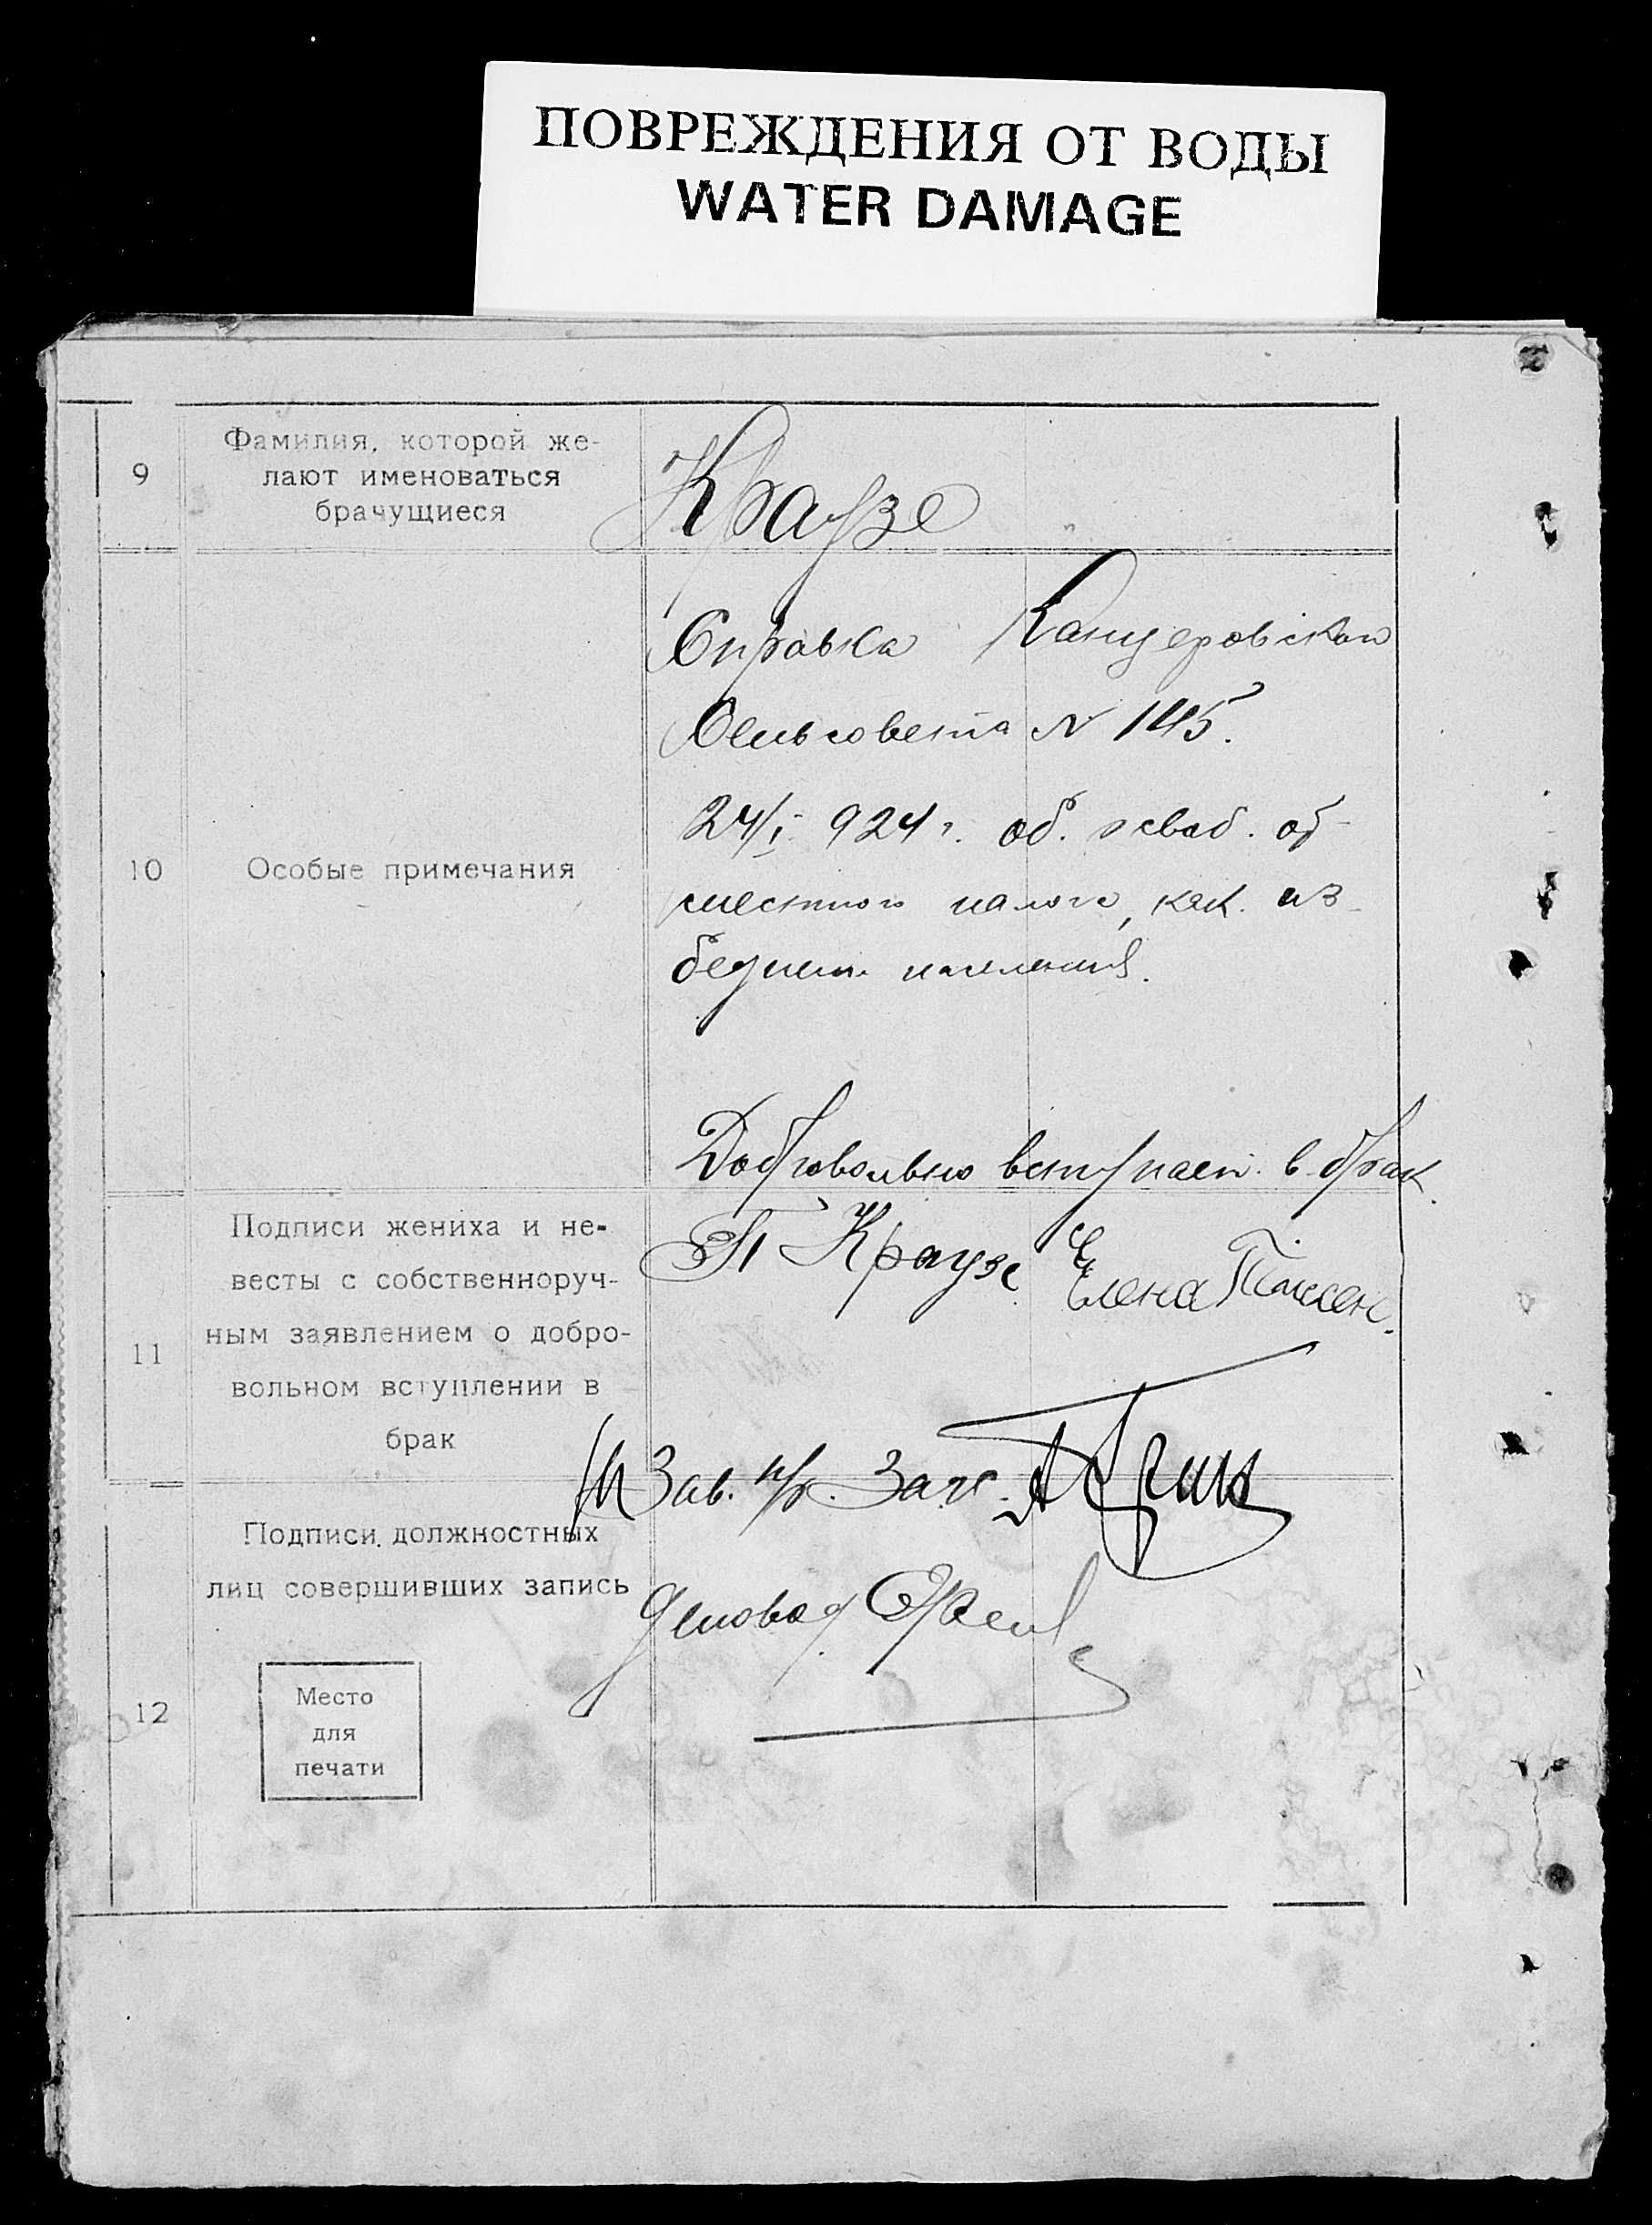 ПОВРЕЖДЕНИЯ ОТ ВОДЫ
WATER DAMAGE
9
Фамилия, которой же-
лают именоваться
брачущиеся
Краузе
10
Особые примечания
Справка Канцеровской
Сельсовета N 145.
24/I 924 г. об. освоб. от
местного налога, как из
беднеш. населения.
Добровольно вступает в брак.
11
Подписи жениха и не-
весты с собственноруч-
ным заявлением о добро-
вольном вступлении в
брак
П Краузе Елена
12
Подписи должностных
лиц совершивших запись
Зав. п/о. Загс.
Деловод
Место
для
печати